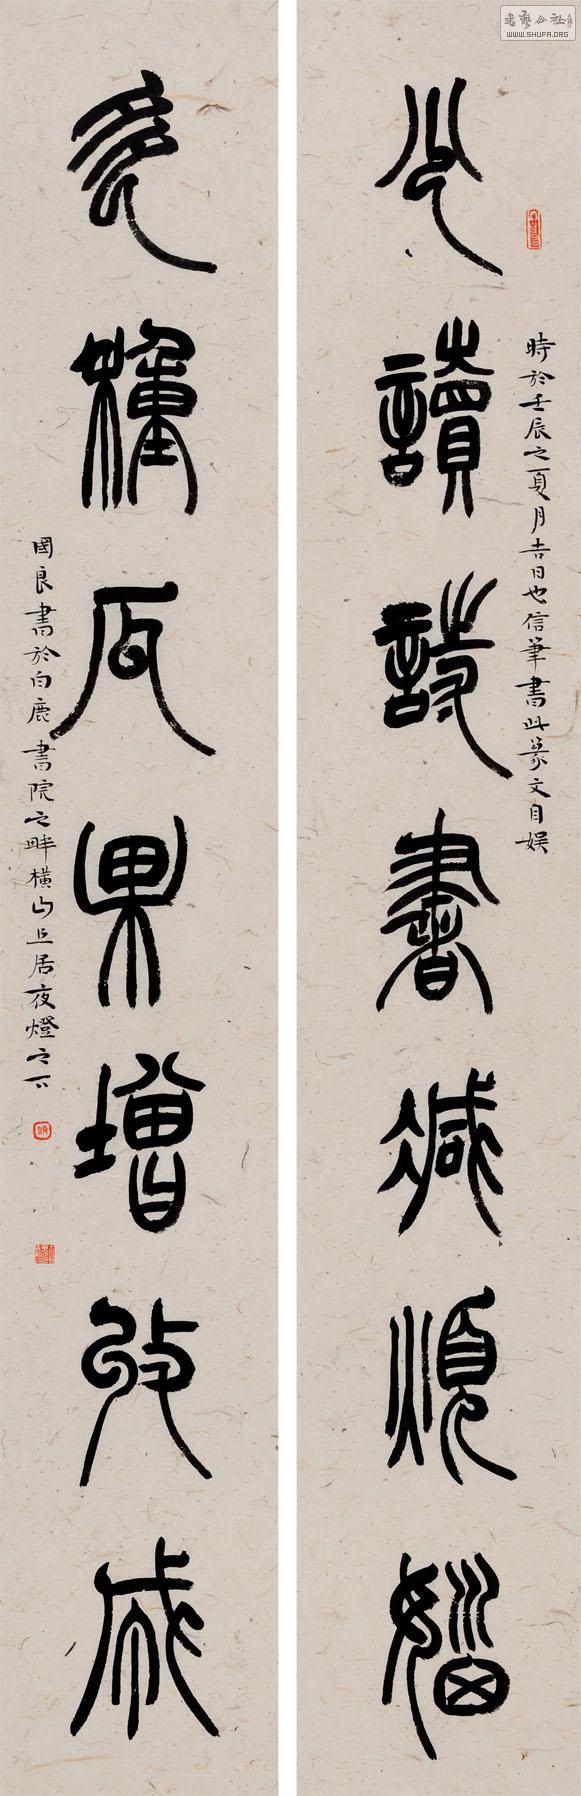 少讀詩書減煩惱
時於壬辰之夏月吉日也信筆書此篆文自娛
多種瓜果增收成
國良書於白鹿書院之畔橫山丘居夜燈之下
書藝公社
WWW.SHUFA.ORG